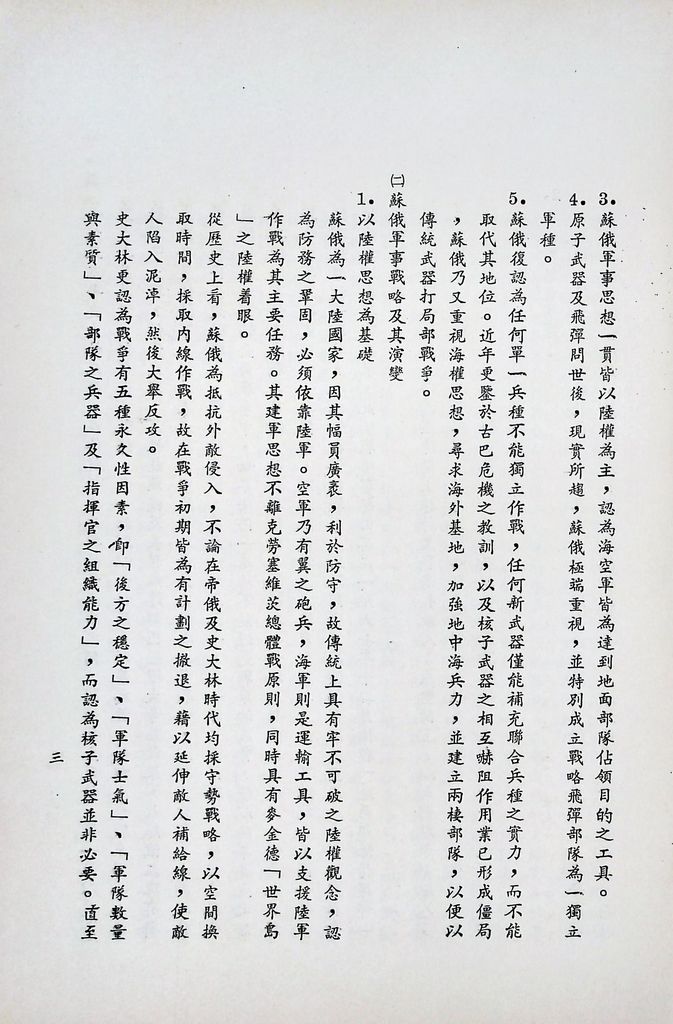 3.蘇俄軍事思想一貫皆以陸權為主，認為海空軍皆為達到地面部隊佔領目的之工具。
4.原子武器及飛彈問世後，現實所趨，蘇俄極端重視，並特別成立戰略飛彈部隊為一獨立
軍種。
5.蘇俄復認為任何單一兵種不能獨立作戰，任何新武器僅能補充聯合兵種之實力，而不能
取代其地位。近年更鑒於古巴危機之教訓，以及核子武器之相互嚇阻作用業已形成僵局
，蘇俄乃又重視海權思想，尋求海外基地，加強地中海兵力，並建立兩棲部隊，以便以
傳統武器打局部戰爭。
㈡蘇俄軍事戰略及其演變
1.以陸權思想為基礎
蘇俄為一大陸國家，因其幅員廣袤，利於防守，故傳統上具有牢不可破之陸權觀念，認
為防務之鞏固，必須依靠陸軍。空軍乃有翼之砲兵，海軍則是運輸工具，皆以支援陸軍
作戰為其主要任務。其建軍思想不離克勞塞維茨總體戰原則，同時具有麥金德「世界島
」之陸權着眼。
從歷史上看，蘇俄為抵抗外敵侵入，不論在帝俄及史大林時代均採守勢戰略，以空間換
取時間，採取內線作戰，故在戰爭初期皆為有計劃之撤退，藉以延伸敵人補給線，使敵
人陷入泥淖，然後大舉反攻。
史大林更認為戰爭有五種永久性因素，卽「後方之穩定」、「軍隊士氣」、「軍隊數量
與素質」、「部隊之兵器」及「指揮官之組織能力」，而認為核子武器並非必要。直至
三